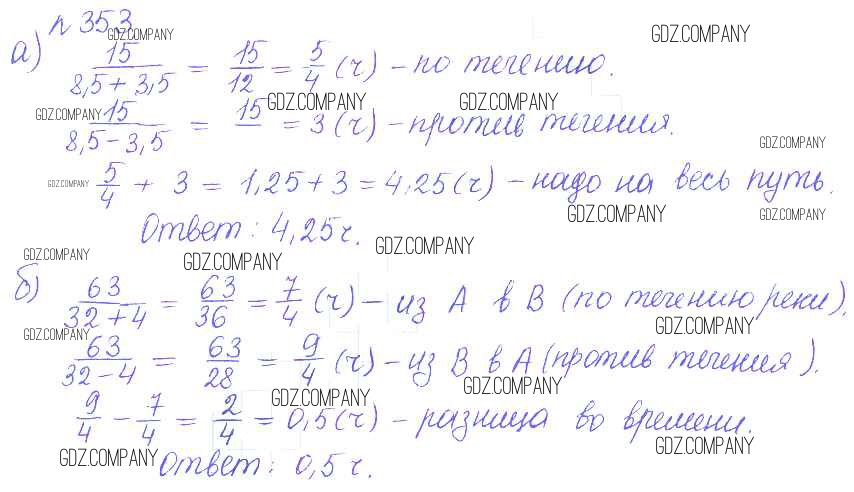 n 353
GDZ.COMPANY
GDZ.COMPANY
а) 15/(8,5+3,5) = 15/12 = 5/4 (ч) – по течению.
GDZ.COMPANY
GDZ.COMPANY
GDZ.COMPANY
15/(8,5-3,5) = 15/ = 3 (ч) – против течения.
GDZ.COMPANY
GDZ.COMPANY
5/4 + 3 = 1,25+3 = 4,25 (ч) – надо на весь путь.
GDZ.COMPANY
GDZ.COMPANY
Ответ: 4,25 ч.
GDZ.COMPANY
GDZ.COMPANY
GDZ.COMPANY
б) 63/(32+4) = 63/36 = 7/4 (ч) – из А в В (по течению реки).
GDZ.COMPANY
GDZ.COMPANY
63/(32-4) = 63/28 = 9/4 (ч) – из В в А (против течения).
GDZ.COMPANY
GDZ.COMPANY
9/4 – 7/4 = 2/4 = 0,5 (ч) – разница во времени.
GDZ.COMPANY
GDZ.COMPANY
Ответ: 0,5 ч.